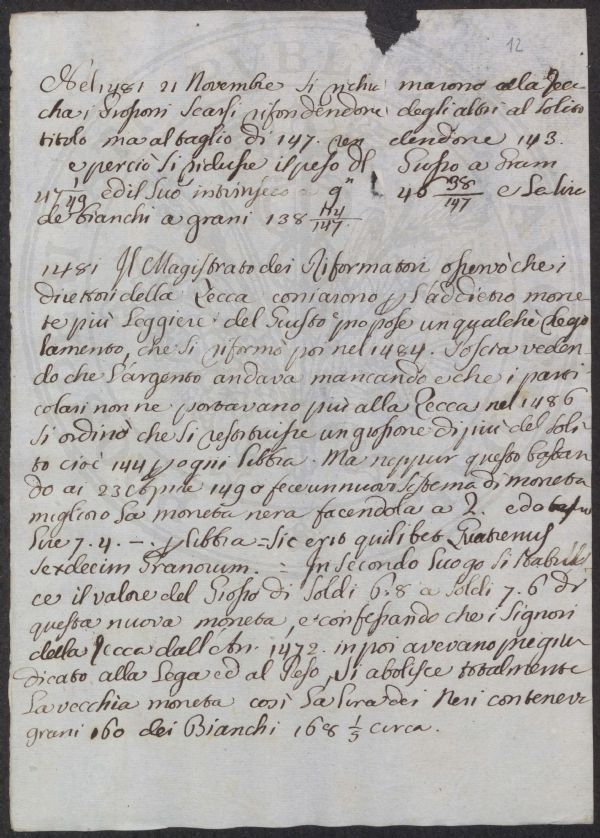 12
Nel 1481 21 Novembre si richia marono alla Zec
cha i Grossoni Scarsi rifondendone degli altri al solito
titolo ma al taglio di 147. ren dendone 143.
e perciò si ridusse il peso del Grosso a gram
47 1/49 ed il suo intrinseco a 46 38/147 e la lira
de Bianchi a grani 138 114/147.
1481 Il Magistrato dei Riformatori osservò che i
direttori della Zecca coniarono p l'addietro mone
te più leggiere del Giusto propose un qualche Rego
lamento, che si riformò poi nel 1484. Poscia veden
do che l'argento andava mancando e che i parti
colari non ne portavano più alla Zecca nel 1486
si ordinò che si restituisse un grossone di più del soli
to cioè 144 p ogni libbra. Ma neppur questo bastan
do ai 23 1490 fece un nuovo sistema di moneta
migliorò la moneta nera facendola a 2. ed a
lire 7. 4. –. p libbra = sic erit quilibet Quatrenus
sexdecim Granorum. = In secondo luogo si stabilis
ce il valore del Grosso di Soldi 6.8 a Soldi 7.6 di
questa nuova moneta, e confessando che i Signori
della Zecca dall'An. 1472. in poi avevano pregiu
dicato alla Lega ed al Peso, si abolisce totalmente
la vecchia moneta così la lira dei Neri conteneva
grani 160 dei Bianchi 168 1/5 circa.